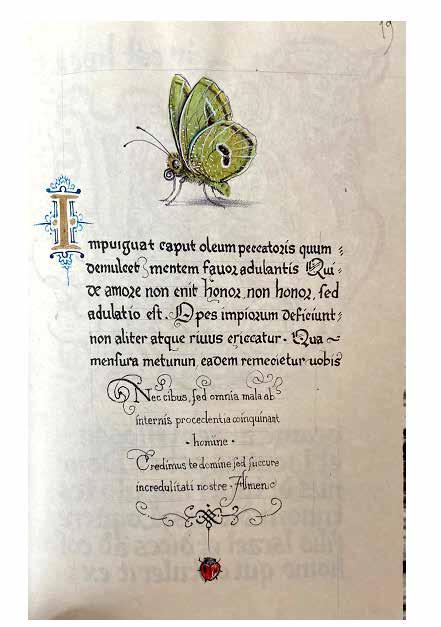 19
Impuiguat caput oleum peccatoris quum
demulcet mentem fauor adulantis Qui-
de amore non enit honor, non honor, sed
adulatio est. Opes impiorum deficiunt
non aliter atque riuus ericcatur. Qua~
mensura metunun, eadem remecietur uobis
Nec cibus, sed omnia mala ab
internis procedentia coinquinant
- homine -
Credimus te domine sed succure
incredulitati nostre. Amen